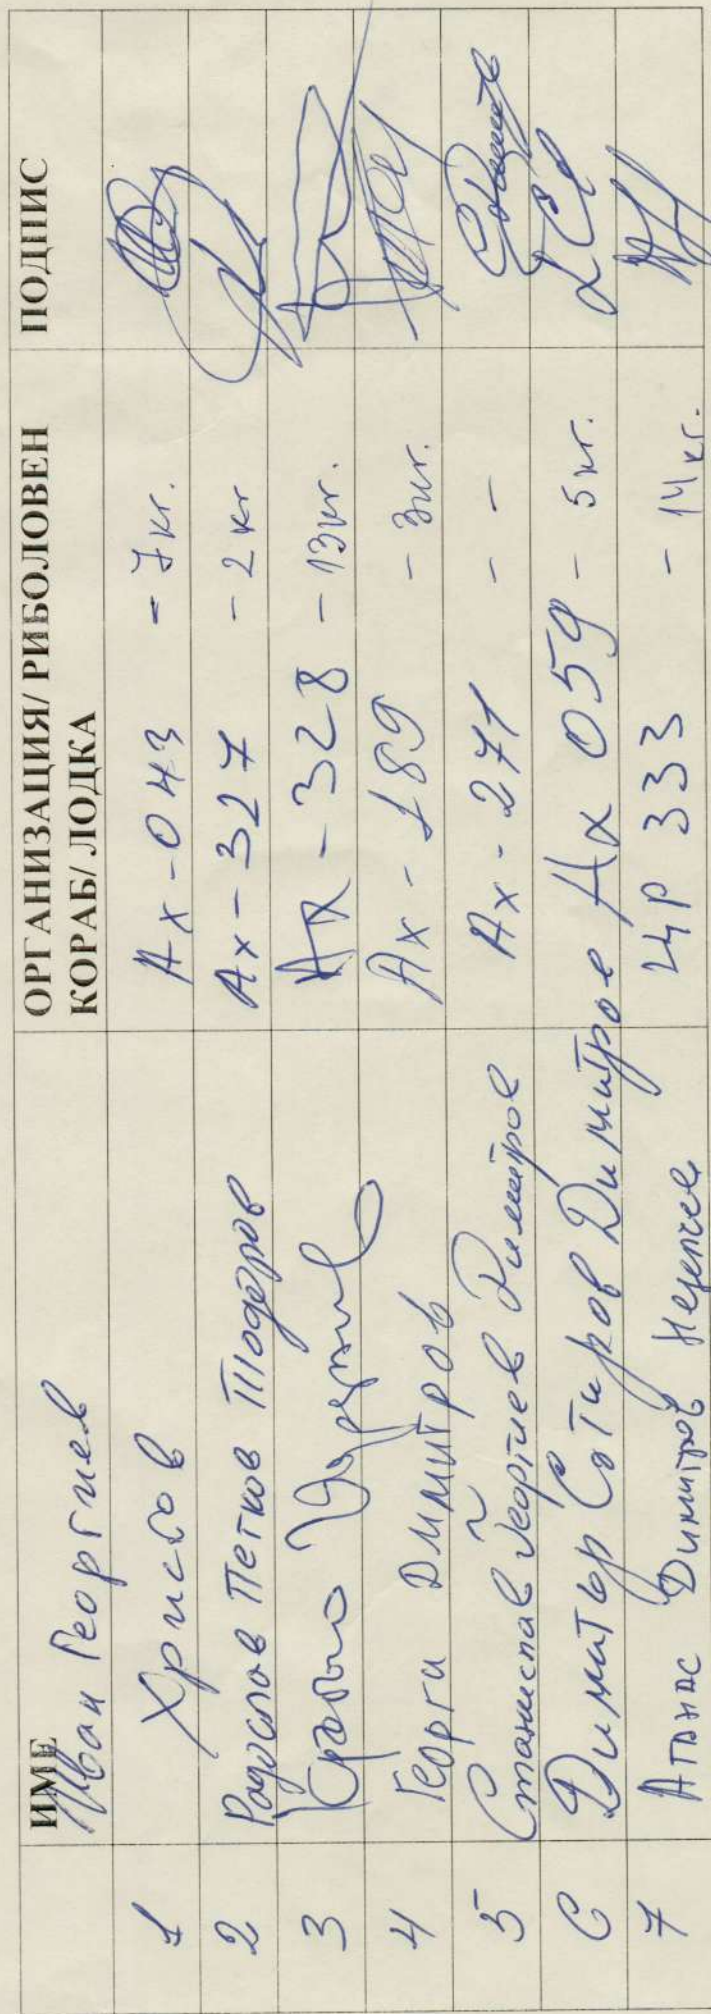 ИМЕ ОРГАНИЗАЦИЯ/ РИБОЛОВЕН ПОДПИС
КОРАБ/ ЛОДКА
Иван Георгиев
1 Христов Ах-043 - 7кг.
2 Радослав Петков Тодоров Ах-327 - 2кг
3 Ах-328 - 13кг.
4 Георги Димитров Ах-189 - 3кг.
5 Станислав Георгиев Димитров Ах-271 - -
6 Димитър Сотиров Димитров Ах 059 - 5кг.
7 Атанас Димитров ЦР 333 - 14кг.